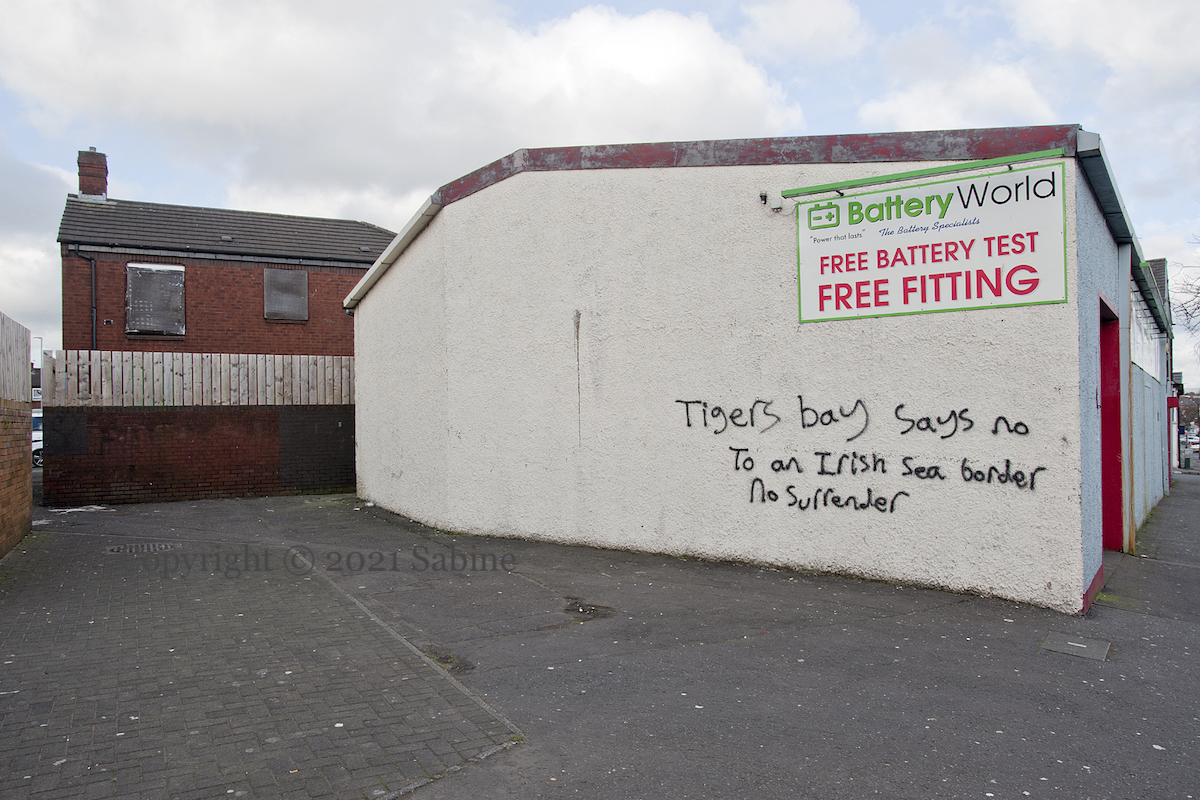 Battery World
"Power that lasts" The Battery Specialists
FREE BATTERY TEST
FREE FITTING
Tigers bay says no
To an Irish Sea border
No Surrender
Copyright © 2021 Sabine